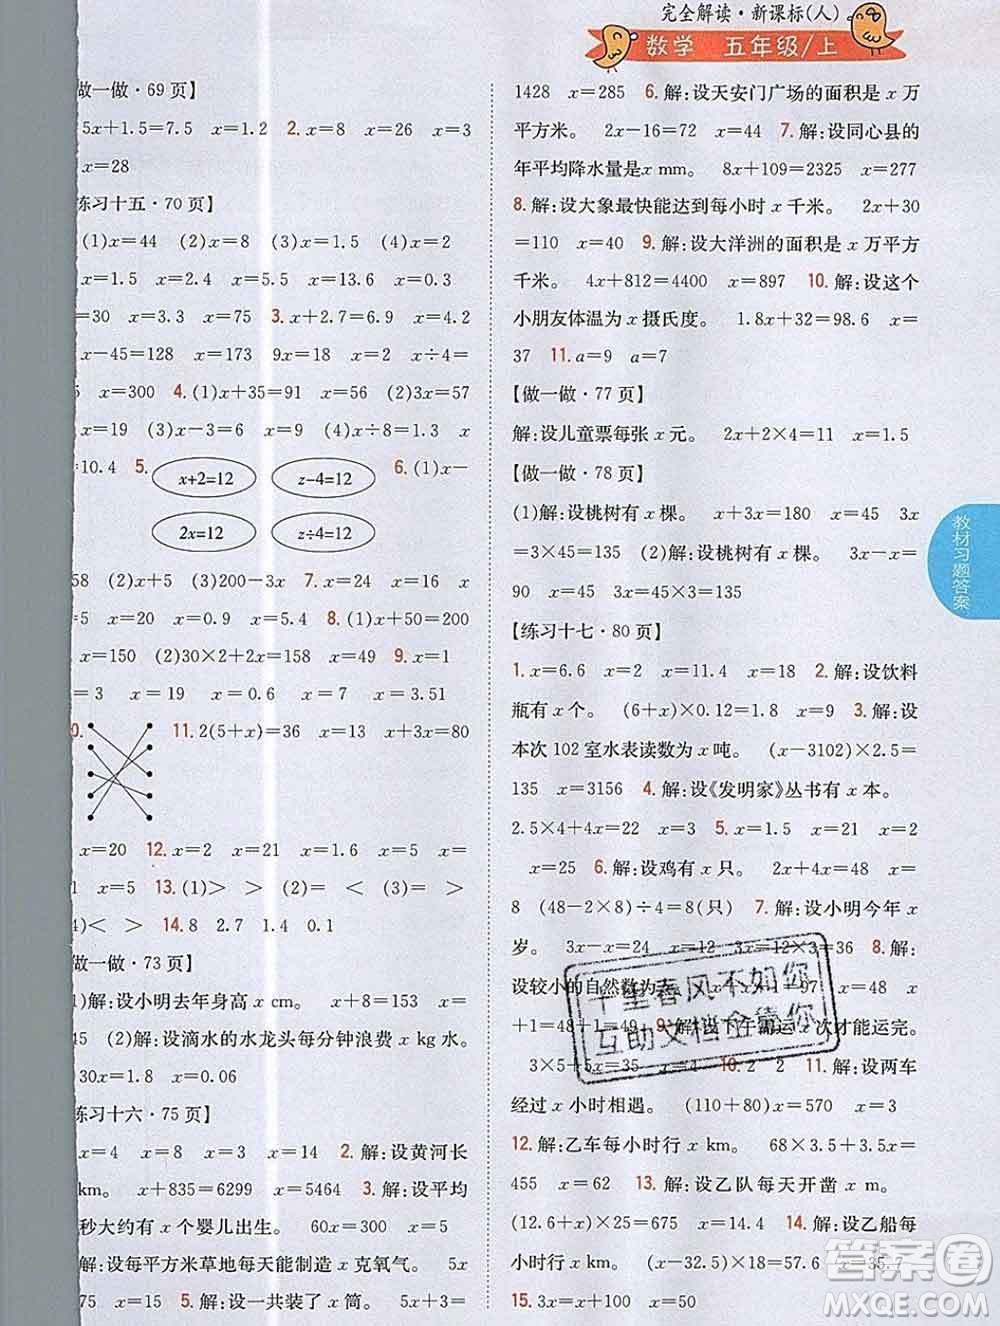 完全解读·新课标(人)
数学 五年级/上
做一做·69 页】
5x+1.5=7.5 x=1.2 2. x=8 x=26 x=3
x=28
练习十五·70 页】
(1)x=44 (2)x=8 (3)x=1.5 (4)x=2
x=1.5 x=2.4 x=13.6 x=0.3
=30 x=3.3 x=75 3. x+2.7=6.9 x=4.2
x-45=128 x=173 9x=9 x=1 x÷4=
x=300 4. (1)x+35=91 x=56 (2)x3=57
x=19 (3)x-3=6 x=9 (4)x÷8=1.3 x
=10.4 5. x+2=12 z-4=12 6. (1)x-
2x=12 z÷4=12
58 (2)x+5 (3)200-3x 7. x=4 x=1 x
=5 x=18 x=0.8 x=5.4 8. (1)x+50=200
x=150 (2)30×2+x=158 x=49 9. x=1
x=3 x=19 x=0.6 x=7 x=3.51
0. 11. 2(5+x)=36 x=13 x+3x=80
x=20 12. x=2 x=21 x=1.6 x=5 x
x=5 13. (1)> > (2)= < (3)= >
4)< > 14. 8 2.7 1.4 0.1
做一做·73 页】
1)解:设小明去年身高 x cm。 x+8=153 x
(2)解:设滴水的水龙头每分钟浪费 x kg 水。
30x=1.8 x=0.06
练习十六·75 页】
x=4 x=8 x=6 x=6 2. 解:设黄河长
km。 x+835=6299 x=5464 3. 解:设平均
秒大约有 x 个婴儿出生。 60x=300 x=5
解:设每平方米草地每天能制造 x 克氧气。 5x
75 x=15 5. 解:设一共装了 x 筒。 5x+3=
1428 x=285 6. 解:设天安门广场的面积是 x 万
平方米。 2x-16=72 x=44 7. 解:设同心县的
年平均降水量是 x mm。 8x+109=2325 x=277
8. 解:设大象最快能达到每小时 x 千米。 2x+30
=110 x=40 9. 解:设大洋洲的面积是 x 万平方
千米。 4x+812=4400 x=897 10. 解:设这个
小朋友体温为 x 摄氏度。 1.8x+32=98.6 x=
37 11. a=9 a=7
【做一做·77 页】
解:设儿童票每张 x 元。 2x+2×4=11 x=1.5
【做一做·78 页】
(1)解:设桃树有 x 棵。 x+3x=180 x=45 3x
=3×45=135 (2)解:设桃树有 x 棵。 3x-x=
90 x=45 3x=45×3=135
【练习十七·80 页】
1. x=6.6 x=3 x=11.4 x=18 2. 解:设饮料
瓶有 x 个。 (6+x)×0.12=1.8 x=9 3. 解:设
本次 102 室水表读数为 x 吨。 (x-3102)×2.5=
135 x=3156 4. 解:设《发明家》丛书有 x 本。
2.5×4+4x=22 x=3 5. x=1.5 x=21 x=2
x=25 6. 解:设鸡有 x 只。 2x+4x=48 x=
8 (48-2×8)÷4=8(只) 7. 解:设小明今年 x
岁。 3x-x=24 x=12 3x=12×3=36 8. 解:
设较小的自然数为 x=48 x
+1=48+1=49 9. 解:设下午 运 x 次才能运完。
3×5+5x=35 x=4 10. 2 2 11. 解:设两车
经过 x 小时相遇。 (110+80)x=570 x=3
12. 解:乙车每小时行 x km。 68×3.5+3.5x=
455 x=62 13. 解:设乙队每天开凿 x m。
(12.6+x)×25=675 x=14.4 14. 解:设乙船每
小时行 x km。 (32.5-x)×18=57.6 x=35.7
15. 3x=x+100 x=50
教材习题答案
千里春风不如你
互助文档全靠你
答案圈
MXQE.COM